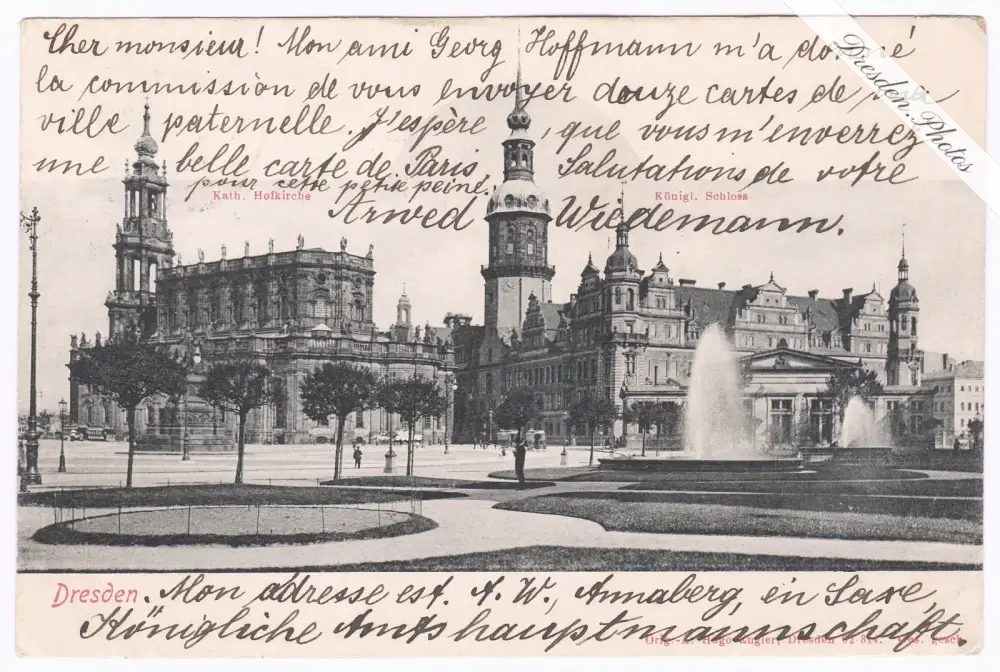 Cher monsieur! Mon ami Georg Hoffmann m'a donné
la commission de vous envoyer douze cartes de
ville paternelle. J'espère, que vous m'enverrez
une belle carte de Paris
pour cette petite peine. Salutations de votre
Arwed Wiedemann.
Dresden.Photos
Kath. Hofkirche
Königl. Schloss
Dresden
Mon adresse est. A. W., Annaberg, en Saxe,
Königliche Amtshauptmannschaft.
Orig.-A. Hugo Engler, Dresden 02 314. Ges. gesch.